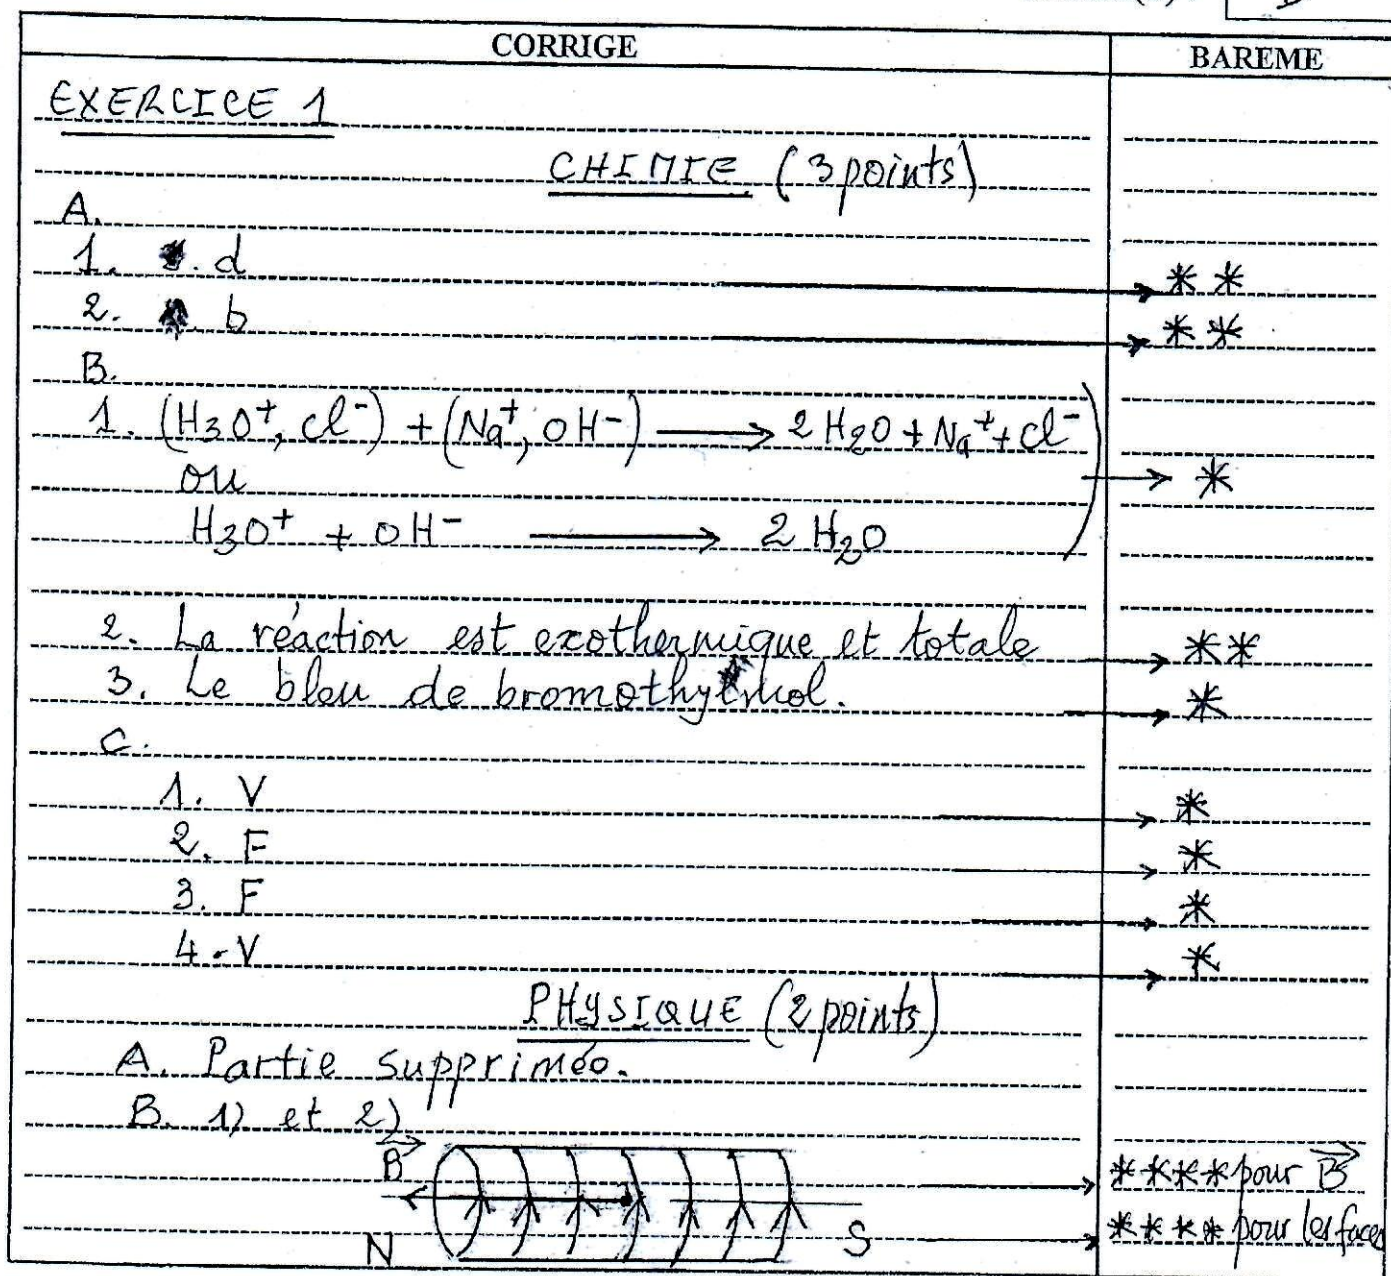 CORRIGE BAREME
EXERCICE 1
CHIMIE (3 points)
A.
1. . d → * *
2. b → * *
B.
1. (H3O+, Cl-) + (Na+, OH-) → 2 H2O + Na+ + Cl-
ou → *
H3O+ + OH- → 2 H2O
2. La réaction est exothermique et totale → **
3. Le bleu de bromothymol. → *
C.
1. V → *
2. F → *
3. F → *
4. V → *
PHYSIQUE (2 points)
A. Partie supprimée.
B. 1) et 2)
B → **** pour B
N S → **** pour les faces